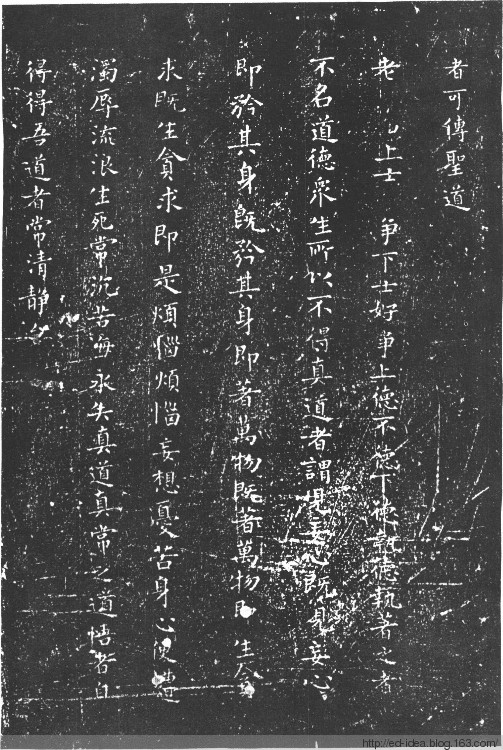 者可傳聖道
老上士争下士好争上德不德下德執德執著之者
不名道德衆生所以不得真道者謂見妄心既見妄心
即矜其身既矜其身即著萬物既著萬物即生貪
求既生貪求即是煩惱煩惱妄想憂苦身心便遭
濁辱流浪生死常沉苦海永失真道真常之道悟者自
得得吾道者常清靜矣
http://ed-idea.blog.163.com/